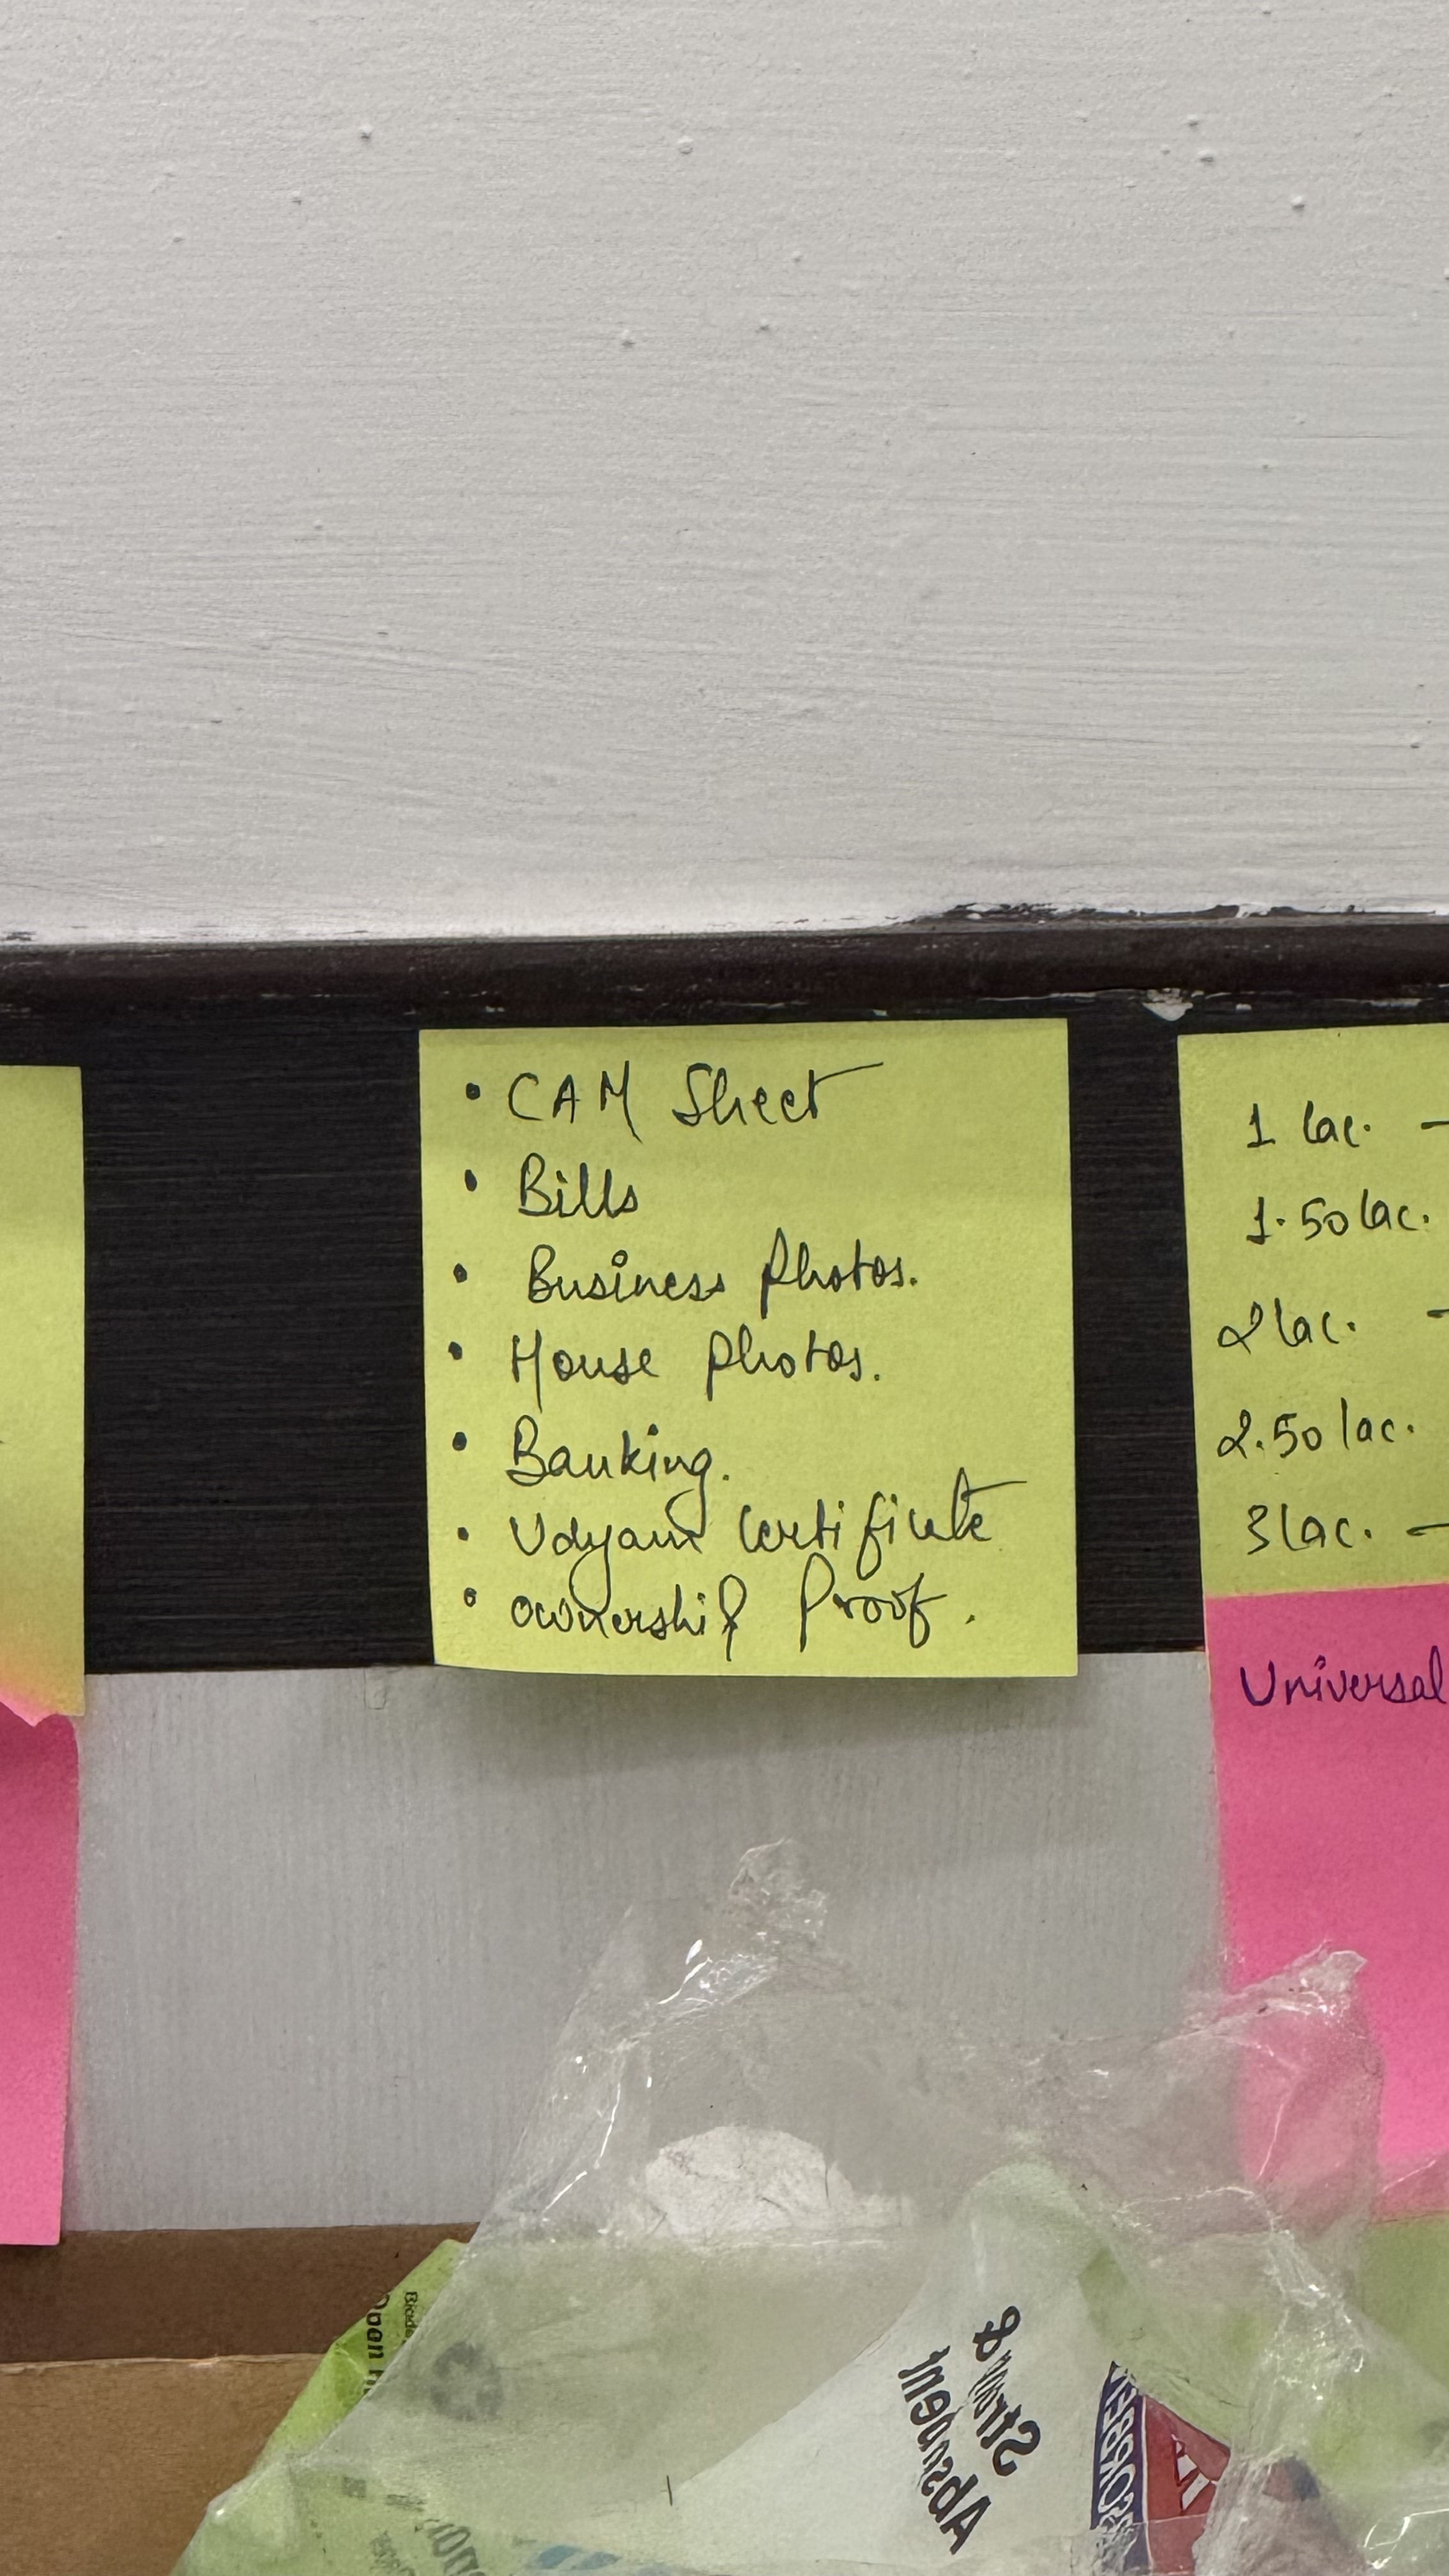 • CAM Sheet
• Bills
• Business Photos.
• House Photos.
• Banking.
• Udyam Certificate
• ownership Proof.
1 lac. –
1.50 lac.
2 lac. –
2.50 lac.
3 lac. –
Universal
Strong &
Absorbent